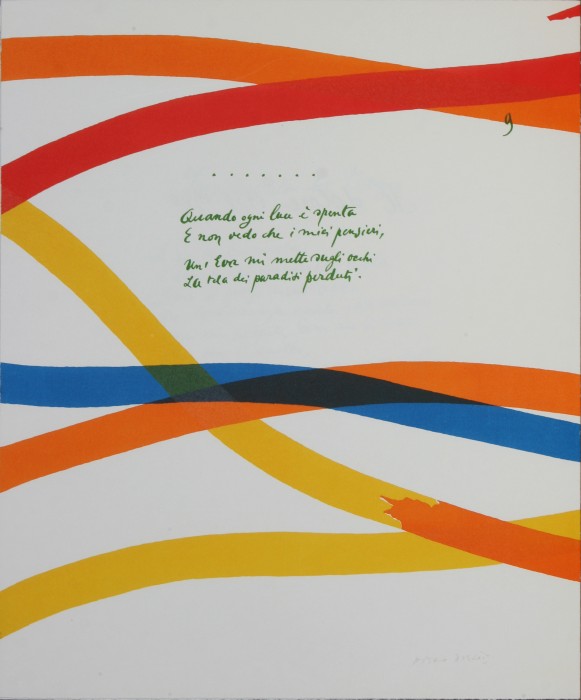 9
.......
Quando ogni luce è spenta
E non vedo che i miei pensieri,
Un' Eva mi mette sugli occhi
La tela dei paradisi perduti.